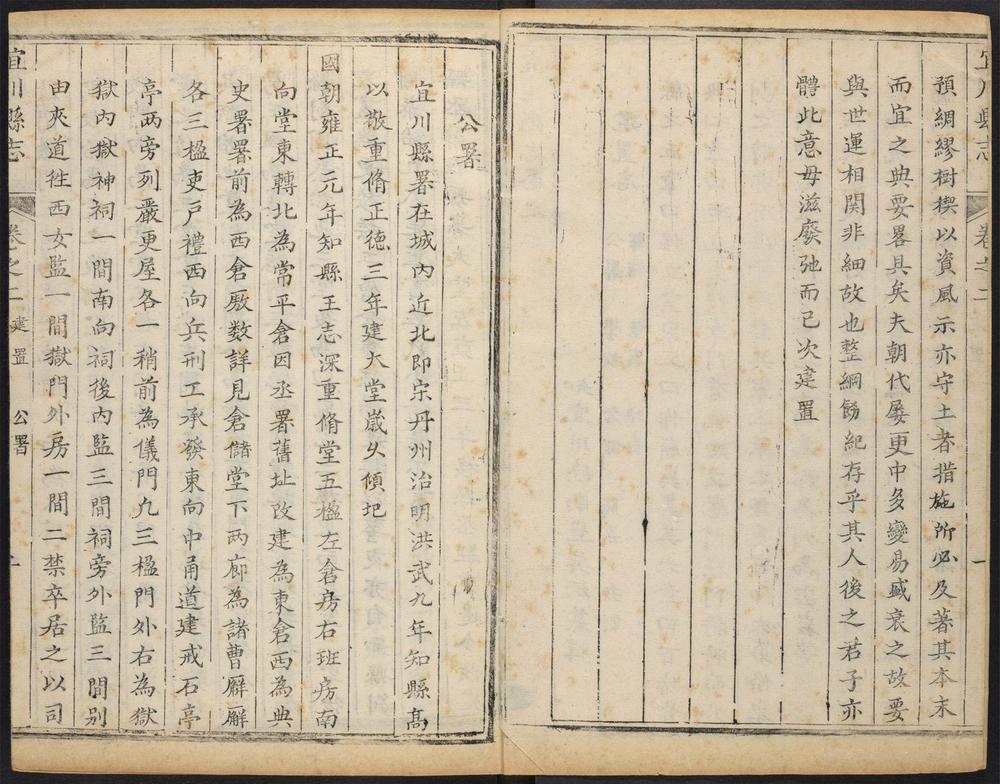 宜川縣志
卷之二
一
預綢繆樹楔以資風示亦守土者措施所必及著其本末
而宜之典要畧具矣夫朝代屡更中多變易盛衰之故要
與世運相関非細故也整綱飭紀存乎其人後之君子亦
體此意毋滋廢弛而已次建置
公署
宜川縣署在城內近北即宋丹州治明洪武九年知縣髙
以敬重脩正德三年建大堂嵗乆傾圮
國朝雍正元年知縣王志深重脩堂五楹左倉房右班房南
向堂東轉北為常平倉因丞署舊址改建為東倉西為典
史署署前為西倉厫数詳見倉儲堂下兩廊為諸曹廨廨
各三楹吏戸禮西向兵刑工承發東向中甬道建戒石亭
亭两旁列嚴更屋各一稍前為儀門凢三楹門外右為獄
獄內獄神祠一間南向祠後內監三間祠旁外監三間别
由夾道徃西女監一間獄門外房一間二禁卒居之以司
宜川縣志
卷之二
建置
公署